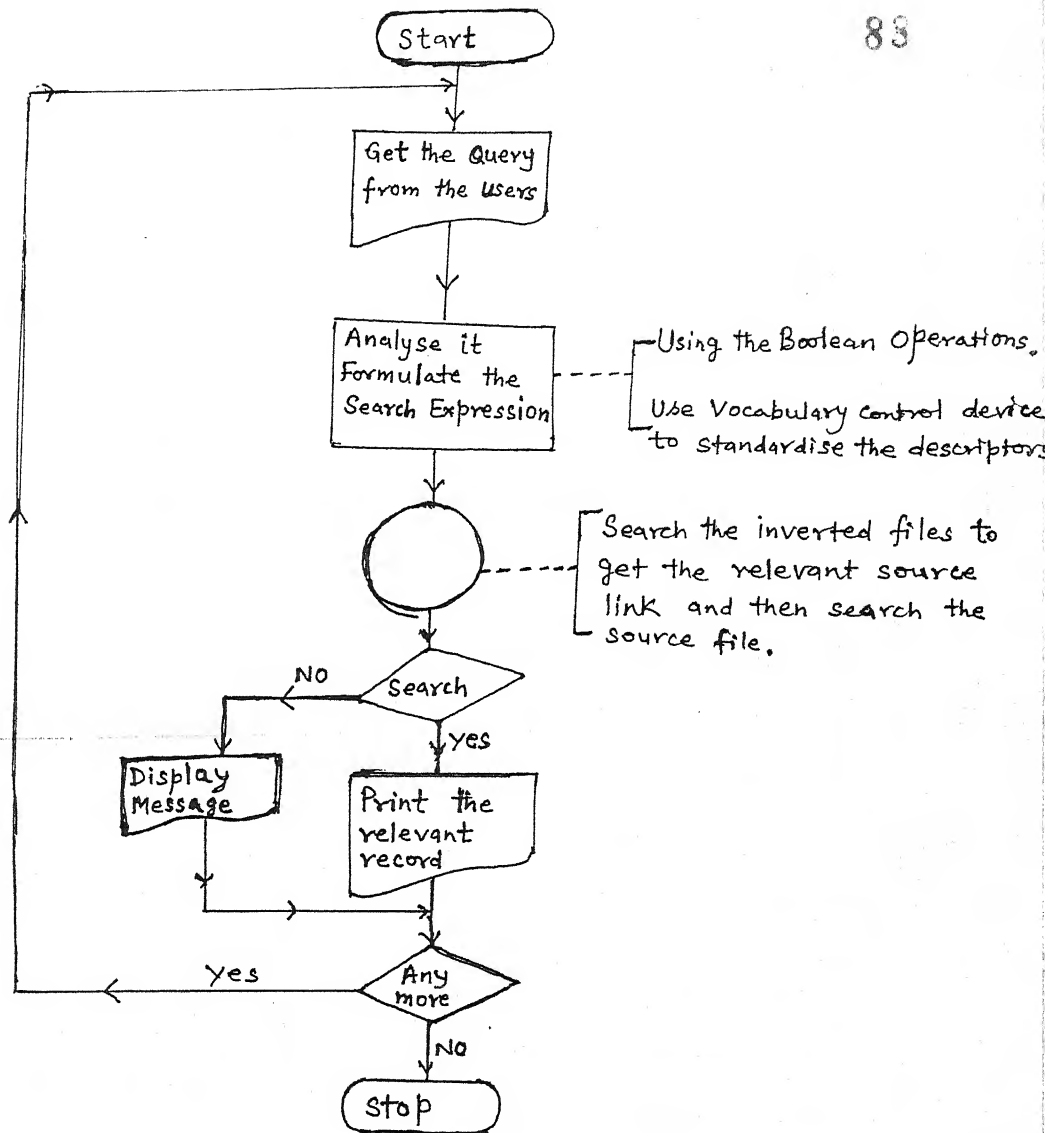 88
Start
Get the Query
from the users
Analyse it
Formulate the
Search Expression
Using the Boolean Operations.
Use Vocabulary control device
to standardise the descriptors
Search the inverted files to
get the relevant source
link and then search the
source file.
Search
NO
Yes
Display
Message
Print the
relevant
record
Any
more
Yes
NO
Stop